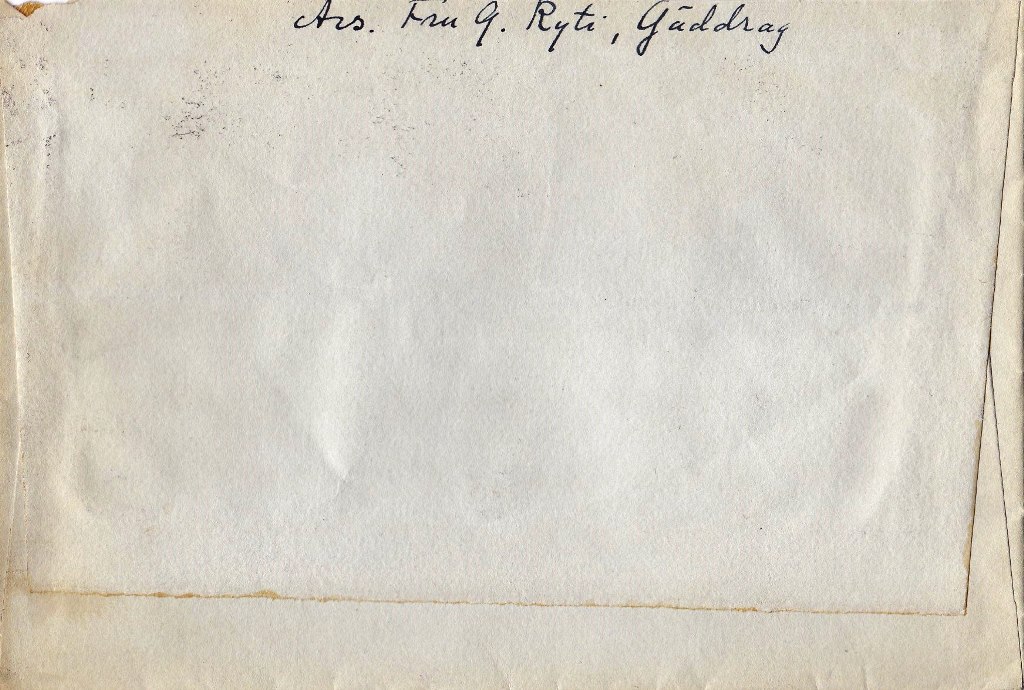 Avs. Fru G. Ryti, Gäddrag